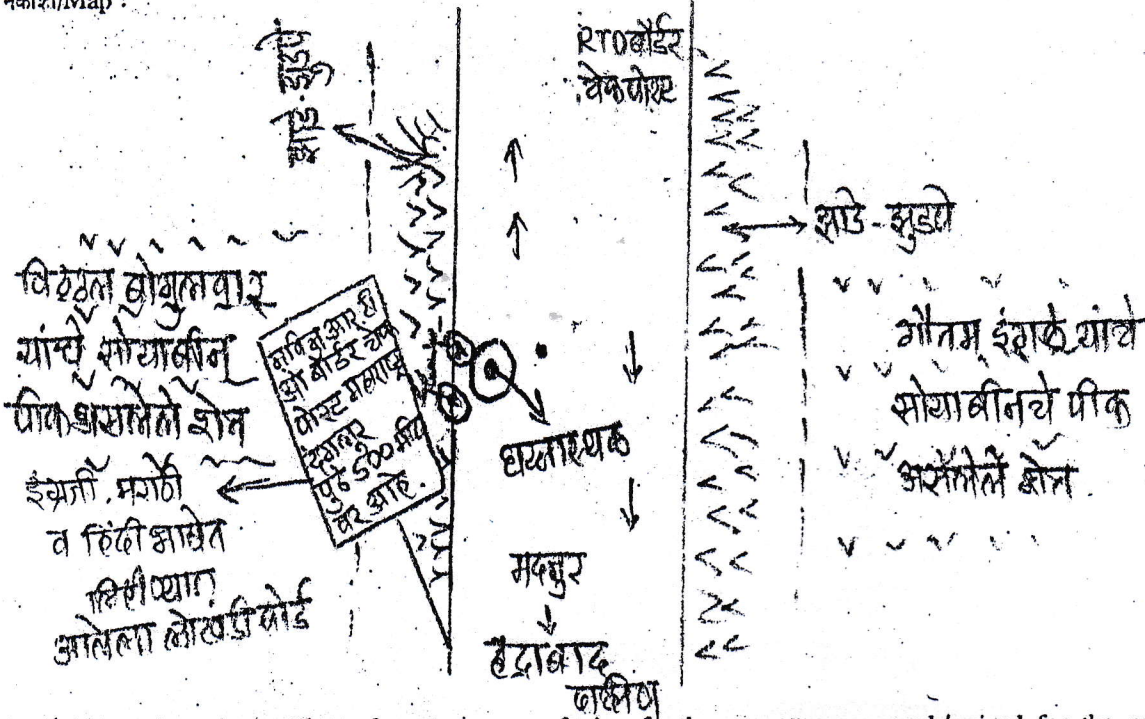 नकाशा/Map :
RTO बॉर्डर
चेक पोस्ट
झाडे-झुडपे
झाडे-झुडपे
विठ्ठल बोगुलवार
यांचे सोयाबीन
पीक असलेले शेत
नविन आर.टी
ओ बॉर्डर चेक
पोस्ट महाराष्ट्र
देगलूर
पुढे 500 मीटर
वर आहे.
घटनास्थळ
गौतम इंगळे यांचे
सोयाबीनचे पीक
असलेले शेत
इंग्रजी, मराठी
व हिंदी भाषेत
लिहीण्यात
आलेला लोखंडी बोर्ड
मदनुर
हैद्राबाद
दक्षिण